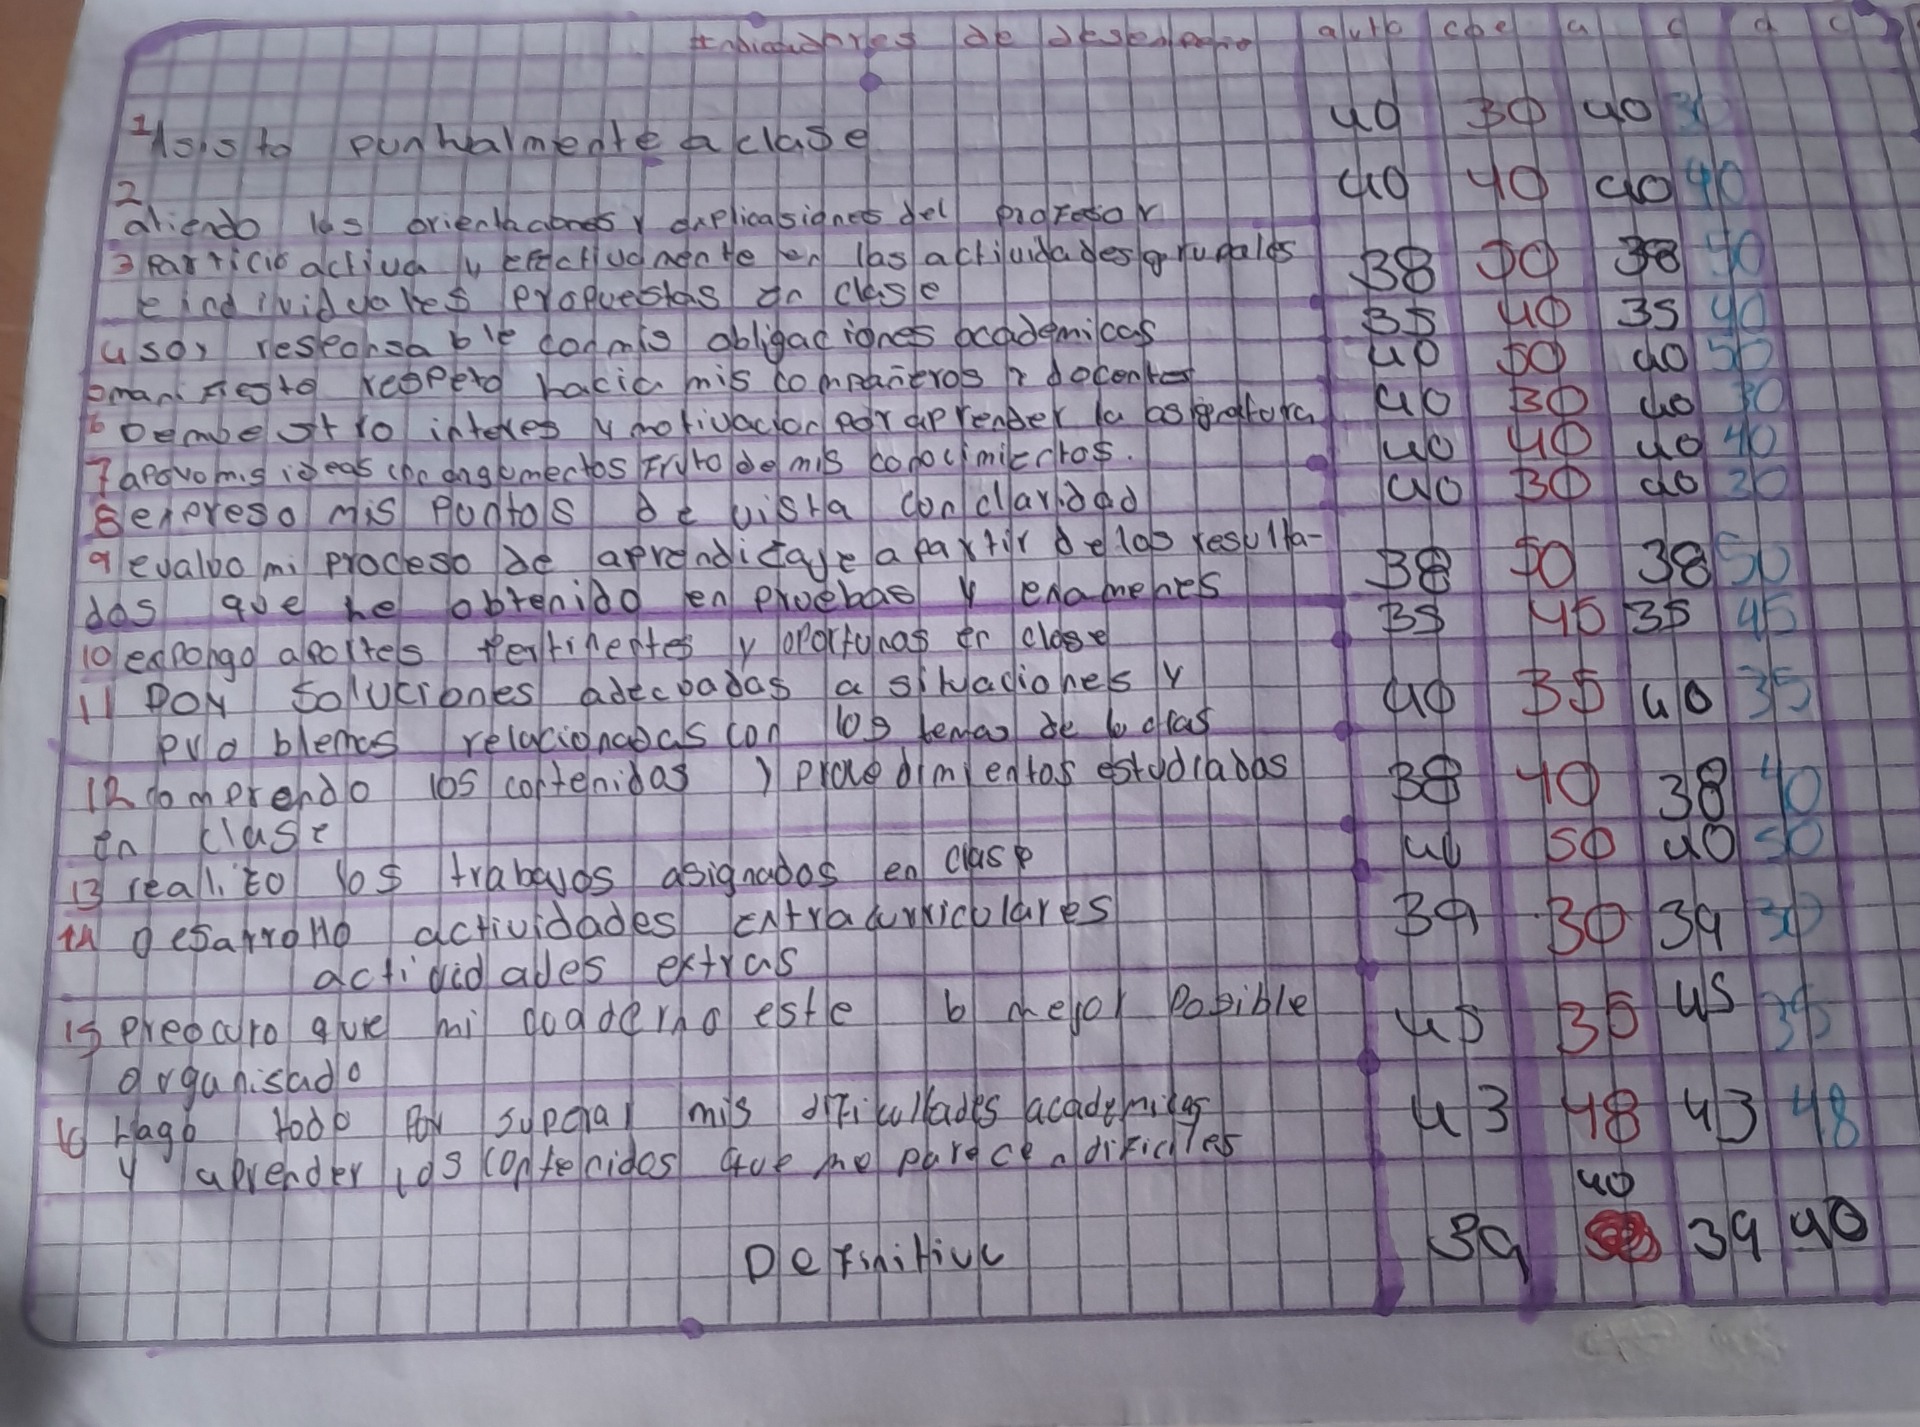 Indicadores de desempeño auto coe a c a c
1 Asisto puntualmente a clase 40 30 40 30
2 atiendo las orientaciones y explicasiones del profesor 40 40 40 40
3 Participo activa y efectivamente en las actividades grupales 38 50 38 50
e individuales propuestas en clase
4 soy responsable con mis obligaciones academicas 35 40 35 40
manifiesto respeto hacia mis compañeros y docentes 40 50 40 50
6 Dembestro interes y motivacion por aprender la asignatura 40 30 40 30
7 apoyo mis ideas con argumentos fruto de mis conocimientos. 40 40 40 40
8 expreso mis puntos de vista con claridad 40 30 40 30
9 evaluo mi proceso de aprendizaje a partir de los resulta- 38 50 38 50
dos que he obtenido en pruebas y examenes
10 expongo aportes pertinentes y oportunas en clase 35 45 35 45
11 Doy soluciones adecuadas a situaciones y 40 35 40 35
problemas relacionadas con los temas de
12 comprendo los contenidas y procedimientos estudiados 38 40 38 40
en clase
13 realizo los trabajos asignados en clase 40 50 40 50
14 desarrollo actividades extracurriculares 39 30 39 30
actividades extras
15 preocuro que mi cuaderno este lo mejor posible 45 35 45 35
organisado
16 Hago todo por superar mis dificultades academicas 43 48 43 48
y aprender los contenidos que me parecen dificiles
40
Definitiva 39 39 40